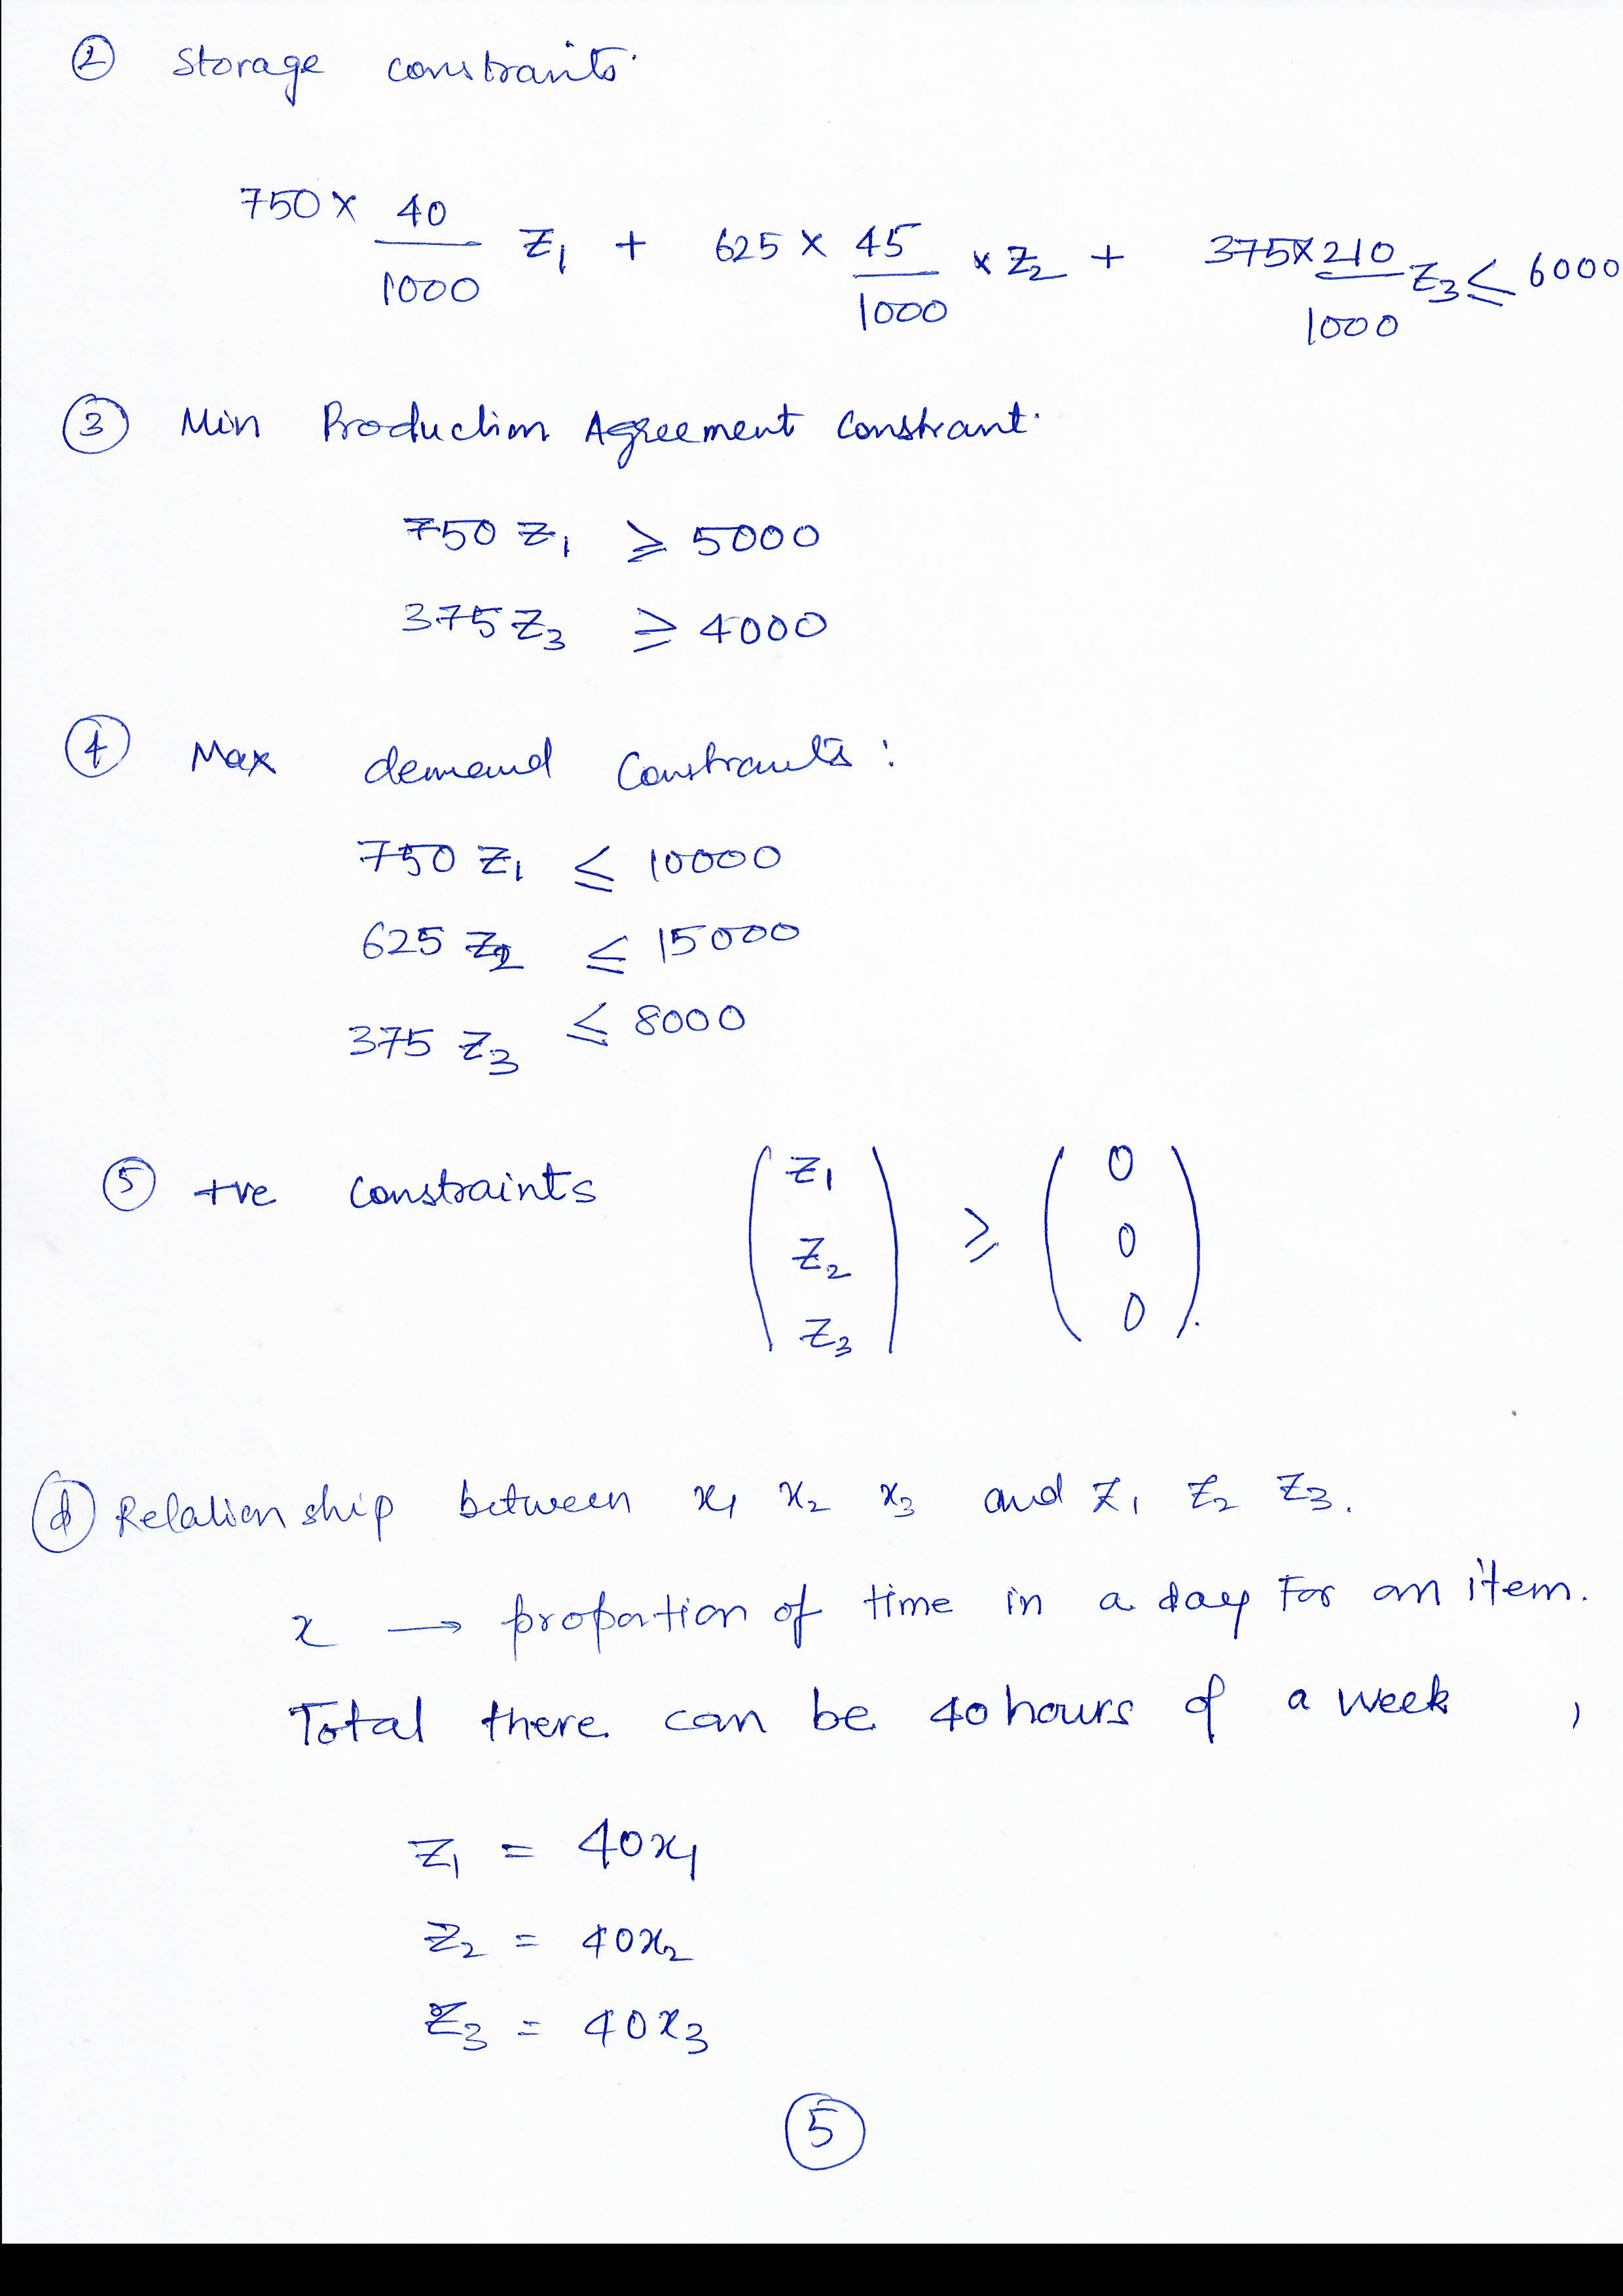 ② Storage constraints.
750 × 40/1000 Z₁ + 625 × 45/1000 × Z₂ + 375×210/1000 Z₃ ≤ 6000
③ Min Production Agreement Constrant.
750 Z₁ ≥ 5000
375 Z₃ ≥ 4000
④ Max demand Constraints :
750 Z₁ ≤ 10000
625 Z₂ ≤ 15000
375 Z₃ ≤ 8000
⑤ +ve constraints (Z₁ Z₂ Z₃) ≥ (0 0 0).
ⓓ Relationship between x₁ x₂ x₃ and Z₁ Z₂ Z₃.
x → proportion of time in a day For an item.
Total there can be 40 hours of a week ,
Z₁ = 40x₁
Z₂ = 40x₂
Z₃ = 40x₃
⑤